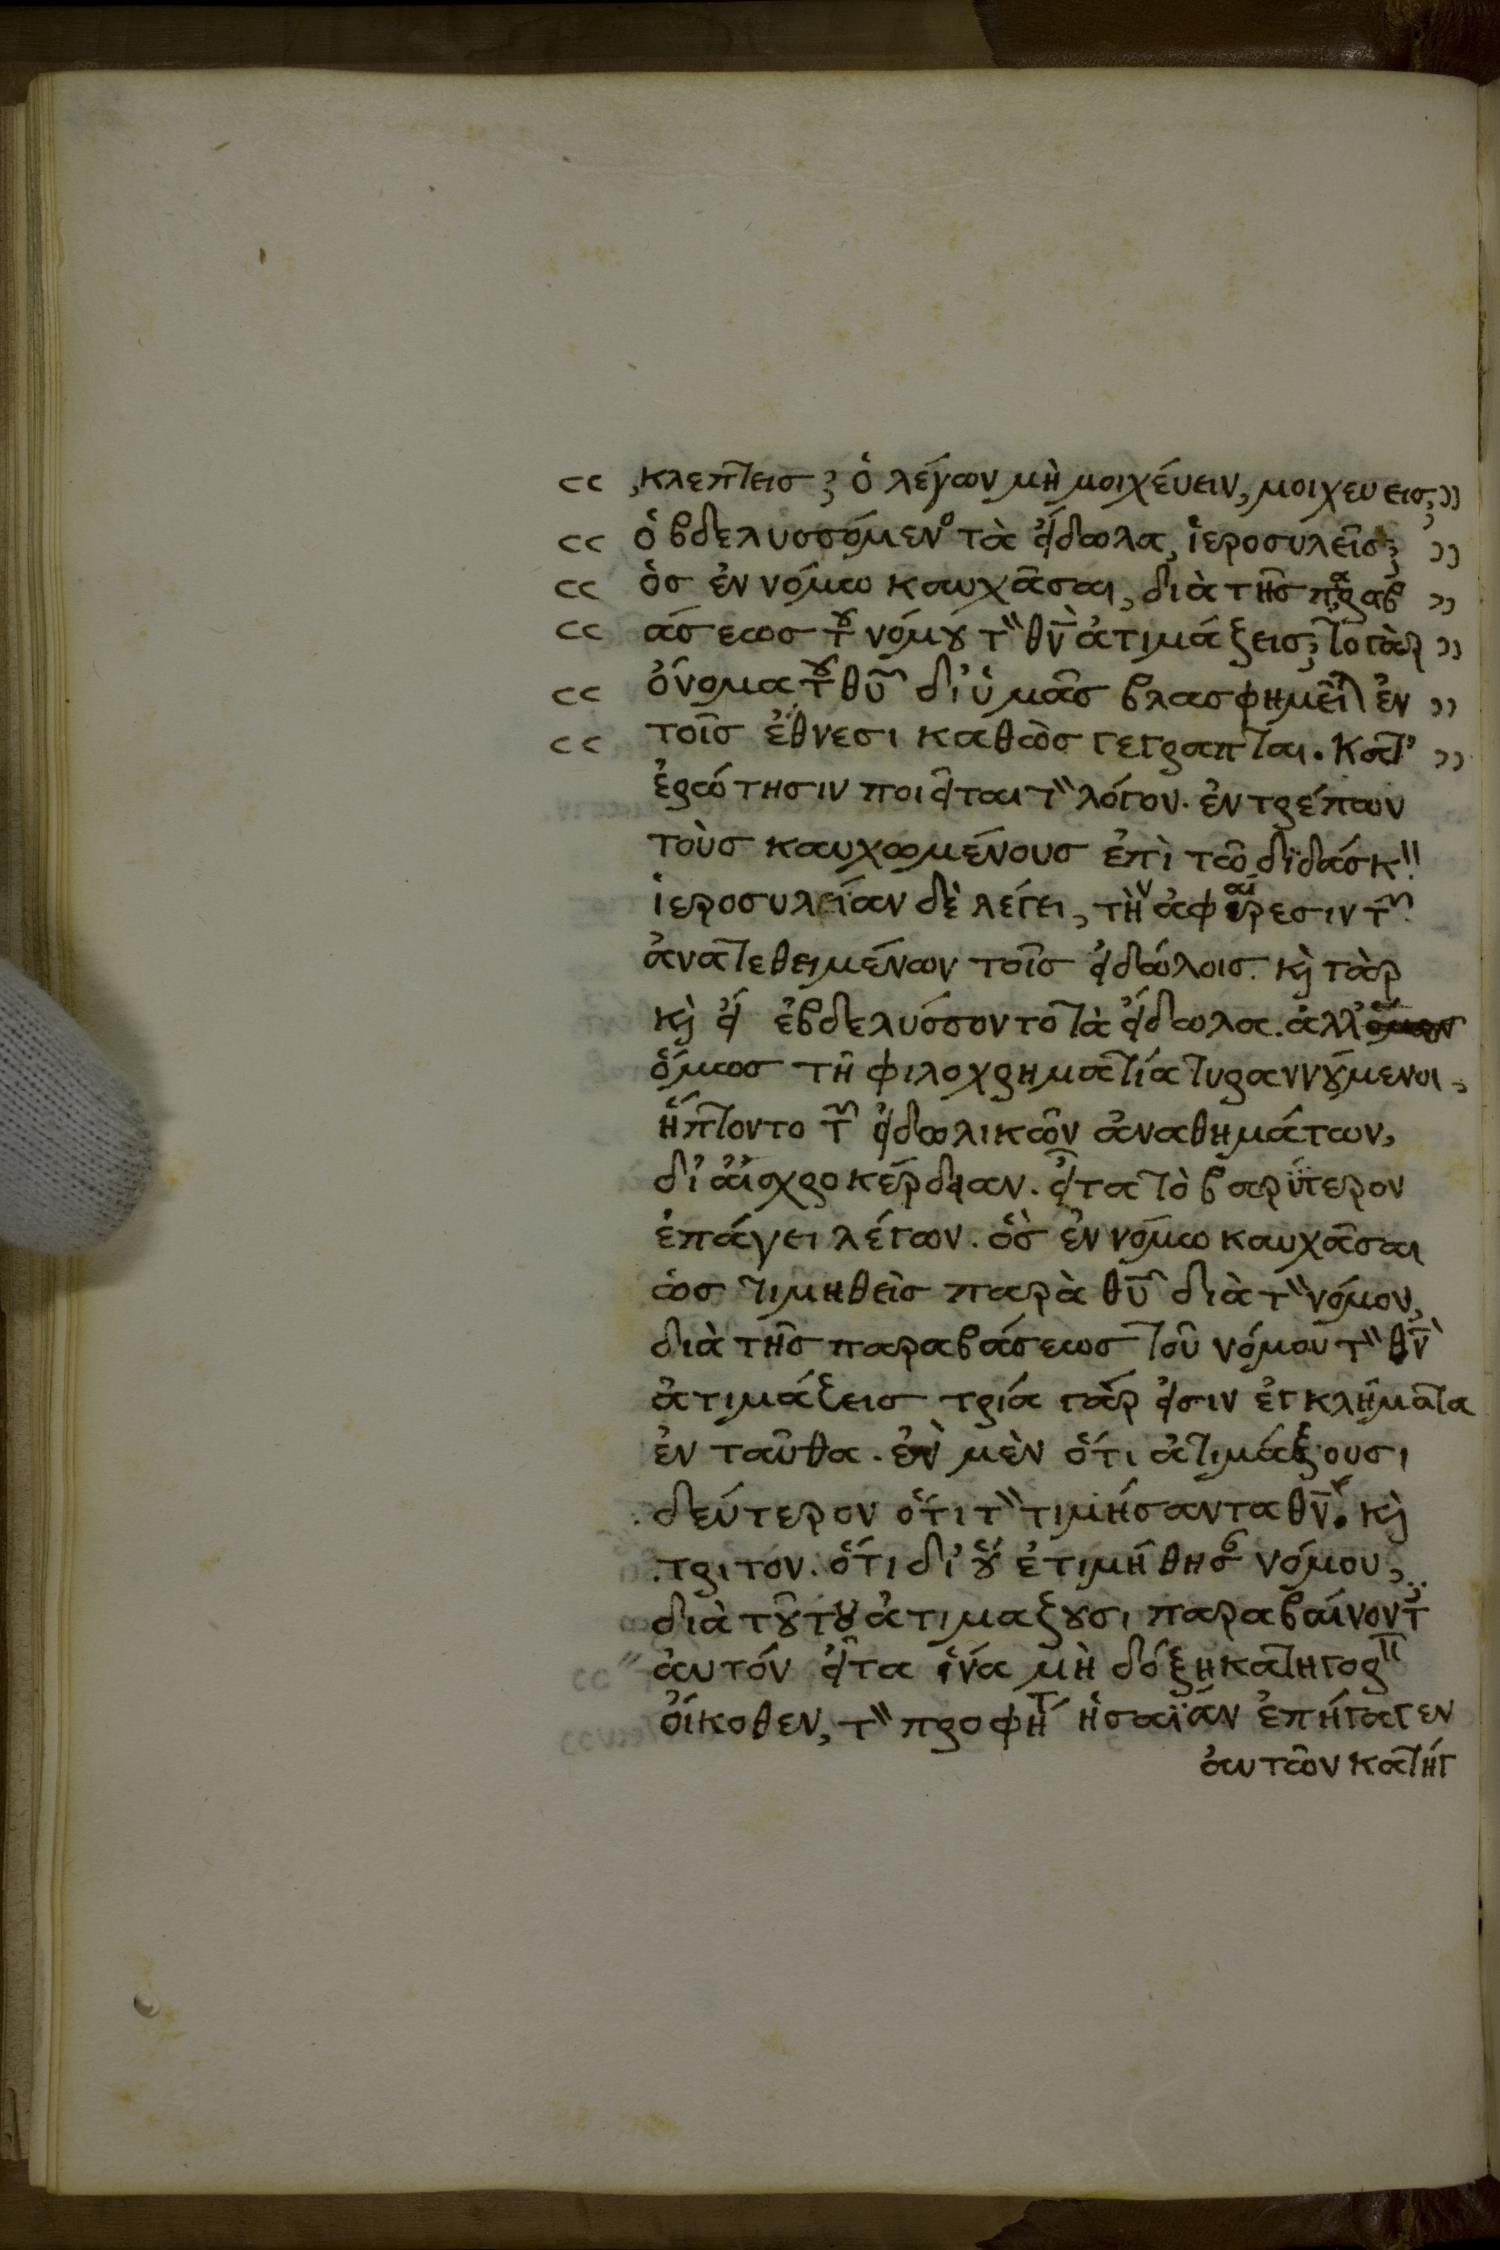 κλεπτεισ; ὁ λέγων μὴ μοιχέυειν, μοιχευεισ;
ὁ βδελυσσόμενο τὰ ἐίδωλα, ἱεροσυλεῖσ;
ὁσ ἐν νόμω καυχᾶσαι, διὰ τῆσ παραβ
άσεωσ τοῦ νόμου τὸν θν̄ ἀτιμάζεισ; το γὰρ
ὄνομα τοῦ θῡ δι' ὑμᾶσ βλασφημεῖται ἐν
τοῖσ ἔθνεσι καθὼσ γέγραπται. Κατ'
ἐρώτησιν ποιεῖται τὸν λόγον. ἐντρέπων
τοὺσ καυχωμένουσ ἐπὶ τῶ διδάσκειν
ἱεροσυλείαν δὲ λέγει, τὴν ἀφαίρεσιν τῶν
ἀνατεθειμένων τοῖσ ἐιδώλοισ. κὶ γὰρ
κὶ εἰ ἐβδελύσσοντο τὰ ἐίδωλα. ἀλλ'
ὅμωσ τῆ φιλοχρηματία τυραννούμενοι,
ἥπτοντο τῶν ἐιδωλικῶν ἀναθημάτων,
δι' ἀισχροκέρδειαν. εἶτα τὸ βαρύτερον
ἐπάγει λέγων. ὃσ ἐν νόμω καυχᾶσαι
ὡσ τιμηθεὶσ παρὰ θῡ διὰ τὸν νόμον,
διὰ τῆσ παραβάσεωσ τοῦ νόμου τὸν θν̄
ἀτιμάζεισ τρία γάρ ἐισιν ἐγκλήματα
ἐν ταῦθα. ἓν μὲν ὅτι ἀτιμάζουσι
δεύτερον ὅτι τὸν τιμήσαντα θν̄. κὶ
τριτον. ὅτι δι' οὗ ἐτιμήθησαν νόμου,
διὰ τούτου ἀτιμαζουσι παραβαίνοντεσ
ἀυτόν εἶτα ἵνα μὴ δόξη κατηγορεῖν
ὄικοθεν, τὸν προφήτην ἡσαΐαν ἐπήγαγεν
ἀυτῶν κατήγ